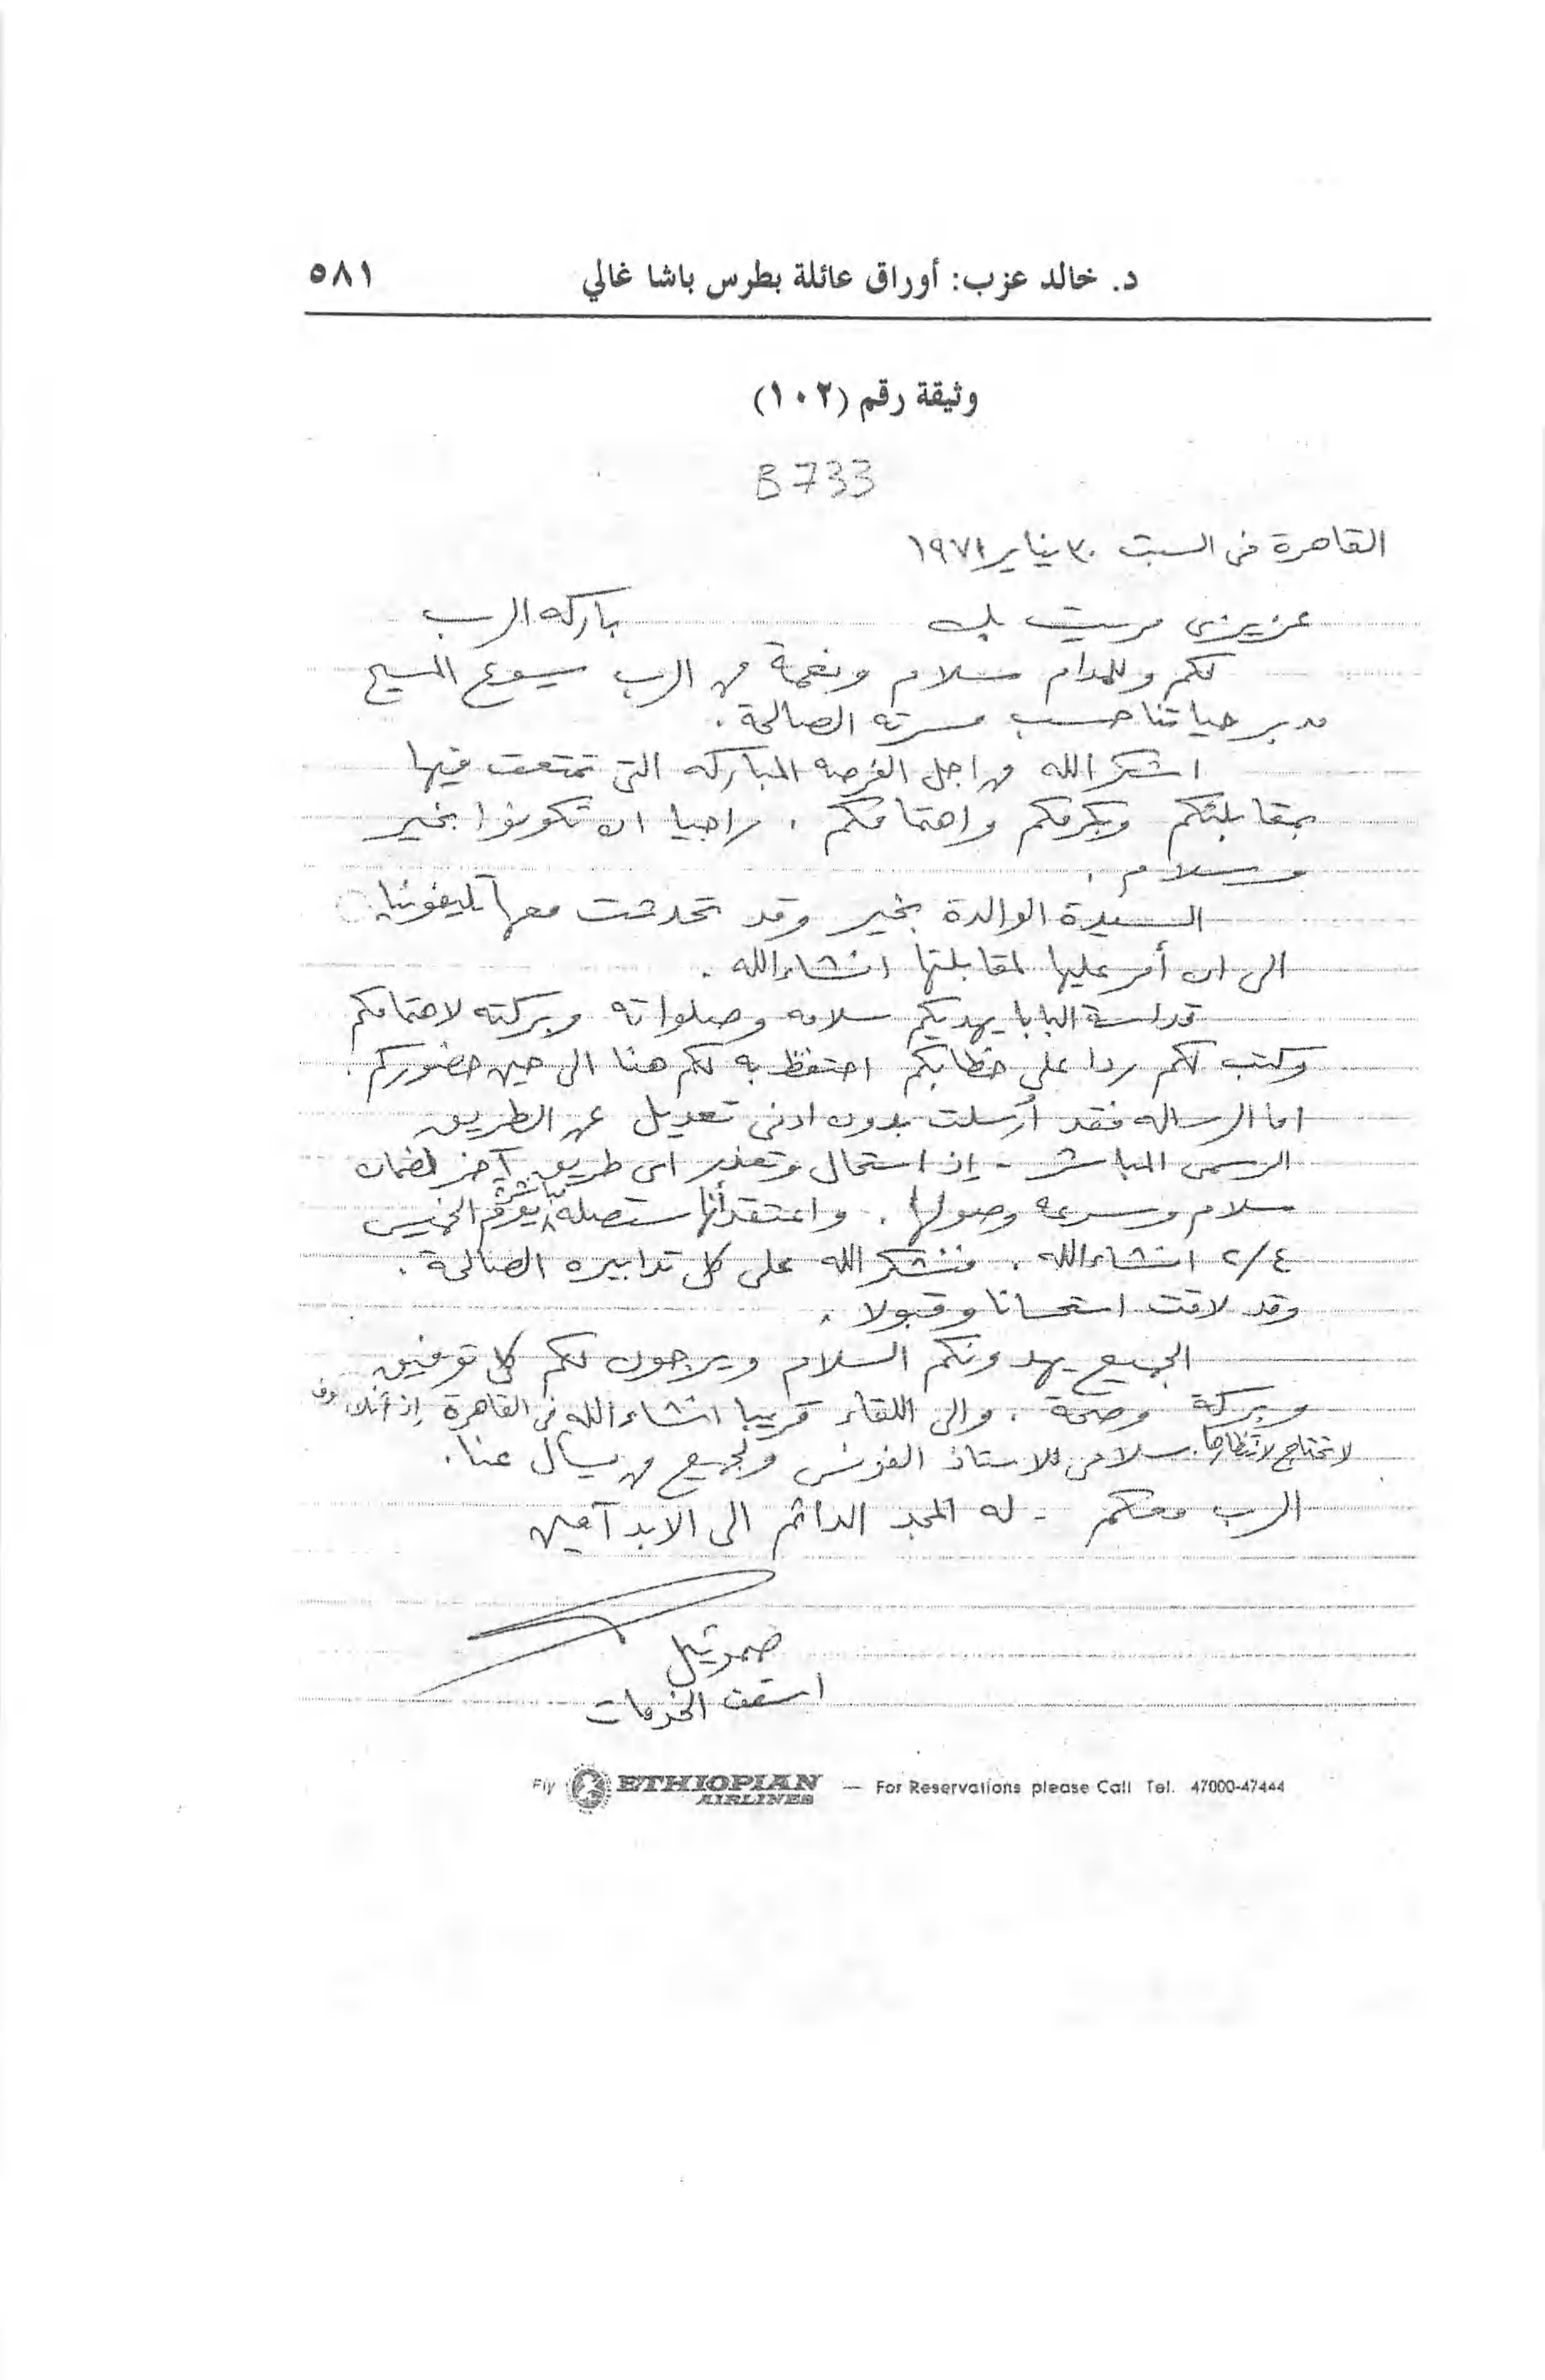 د. خالد عزب: أوراق عائلة بطرس باشا غالي ٥٨١
وثيقة رقم (١٠٢)
B 733
القاهرة فى السبت ٣٠ يناير ١٩٧١
عزيزى مريت بك باركه الرب
لكم وللمدام سلام ونعمة من الرب يسوع المسيح
مدبر حياتنا حسب مسرته الصالحة .
اشكر الله من اجل الفرصه المباركه التى تمتعت فيها
بمقابلتكم وبكرمكم واهتمامكم . راجيا ان تكونوا بخير
وسلام .
السيدة الوالدة بخير وقد تحدثت معها تليفونيا
الى ان أمر عليها لمقابلتها انشاءالله .
قداسة البابا يهديكم سلامه وصلواته وبركته لاهتمامكم
وكتب لكم ردا على خطابكم احتفظ به لكم هنا الى حين حضوركم .
اما الرساله فقد أرسلت بدون ادنى تعديل عن الطريق
الرسمى المباشر - إذ استحال وتعذر اى طريق آخر لضمان
سلام وسرعه وصولها . واعتقد أنها ستصله مباشرة يوم الخميس
٢/٤ انشاءالله . فنشكر الله على كل تدابيره الصالحة .
وقد لاقت استحسانا وقبولا .
الجميع يهدونكم السلام ويرجون لكم كل توفيق
وبركة وصحة . والى اللقاء قريبا انشاءالله فى القاهرة إذ
لا تحتاج لانتظارها . سلامى للاستاذ الفونس ولجميع من يسأل عنا .
الرب معكم - له المجد الدائم الى الابد آمين
صموئيل
اسقف الخدمات
Fly ETHIOPIAN AIRLINES — For Reservations please Call Tel. 47000-47444